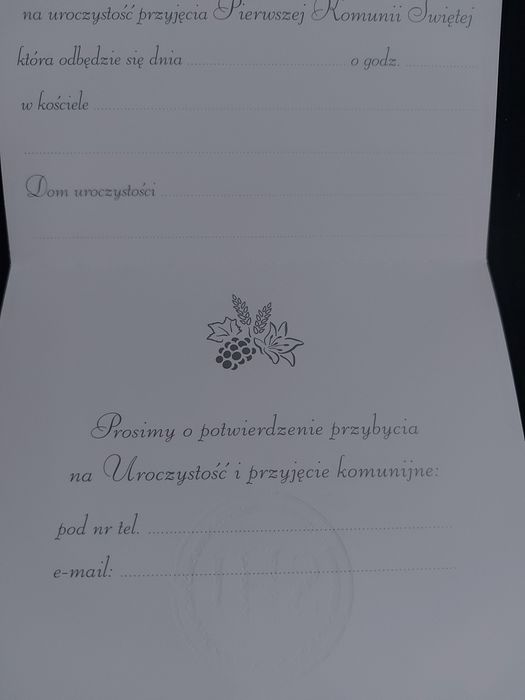 na uroczystość przyjęcia Pierwszej Komunii Świętej
która odbędzie się dnia ........................................ o godz. ..................
w kościele ....................................................................................
....................................................................................................
Dom uroczystości .................................................................
....................................................................................................
Prosimy o potwierdzenie przybycia
na Uroczystość i przyjęcie komunijne:
pod nr tel. ............................................................................
e-mail: ...................................................................................